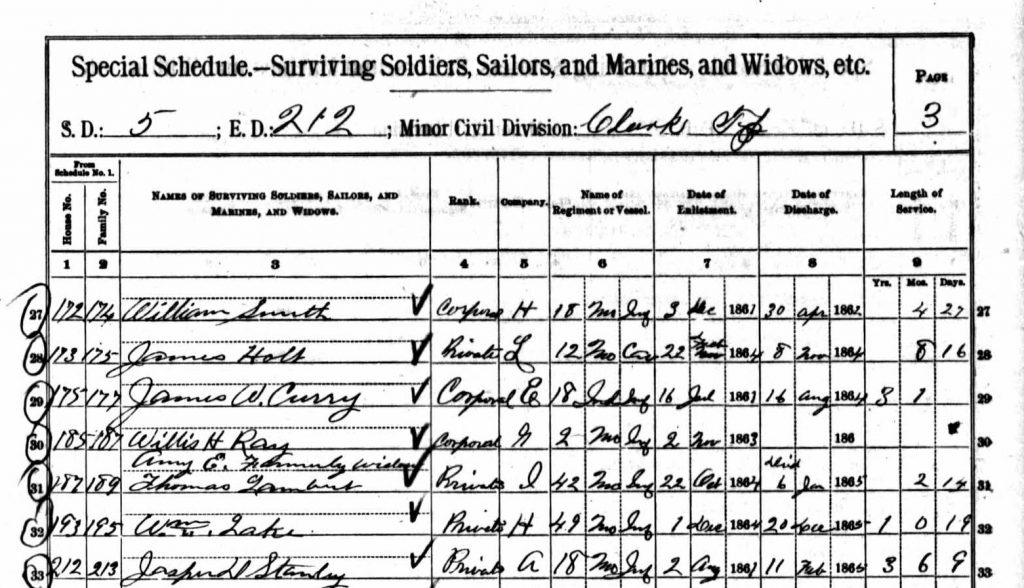 Special Schedule.—Surviving Soldiers, Sailors, and Marines, and Widows, etc.
PAGE
3
S. D.: 5 ; E. D.: 212 ; Minor Civil Division: Clark Tp
From Schedule No. 1.
House No.
Family No.
NAMES OF SURVIVING SOLDIERS, SAILORS, AND
MARINES, AND WIDOWS.
Rank.
Company.
Name of
Regiment or Vessel.
Date of
Enlistment.
Date of
Discharge.
Length of
Service.
1 2 3 4 5 6 7 8 9
Yrs. Mos. Days.
27 172 174 William Smith Corporal H 18 Mo Inf 3 Dec 1861 30 apr 1862 4 27 27
28 173 175 James Holt Private L 12 Mo Cav 22 1864 8 Nov 1864 8 16 28
29 175 177 James W. Curry Corporal E 18 Ind Inf 16 Jul 1861 16 aug 1864 3 1 29
30 185 187 Willis H Ray Corporal 2 Mo Inf 2 Nov 1863 186 30
Amy E. Formerly widow
31 187 189 Thomas Lambert Private I 42 Mo Inf 22 Oct 1864 died 6 Jan 1865 2 14 31
32 193 195 Wm. Lake Private H 49 Mo Inf 1 Dec 1864 20 Dec 1865 1 0 19 32
33 212 213 Jasper Stanley Private A 18 Mo Inf 2 Aug 1861 11 Feb 1865 3 6 9 33